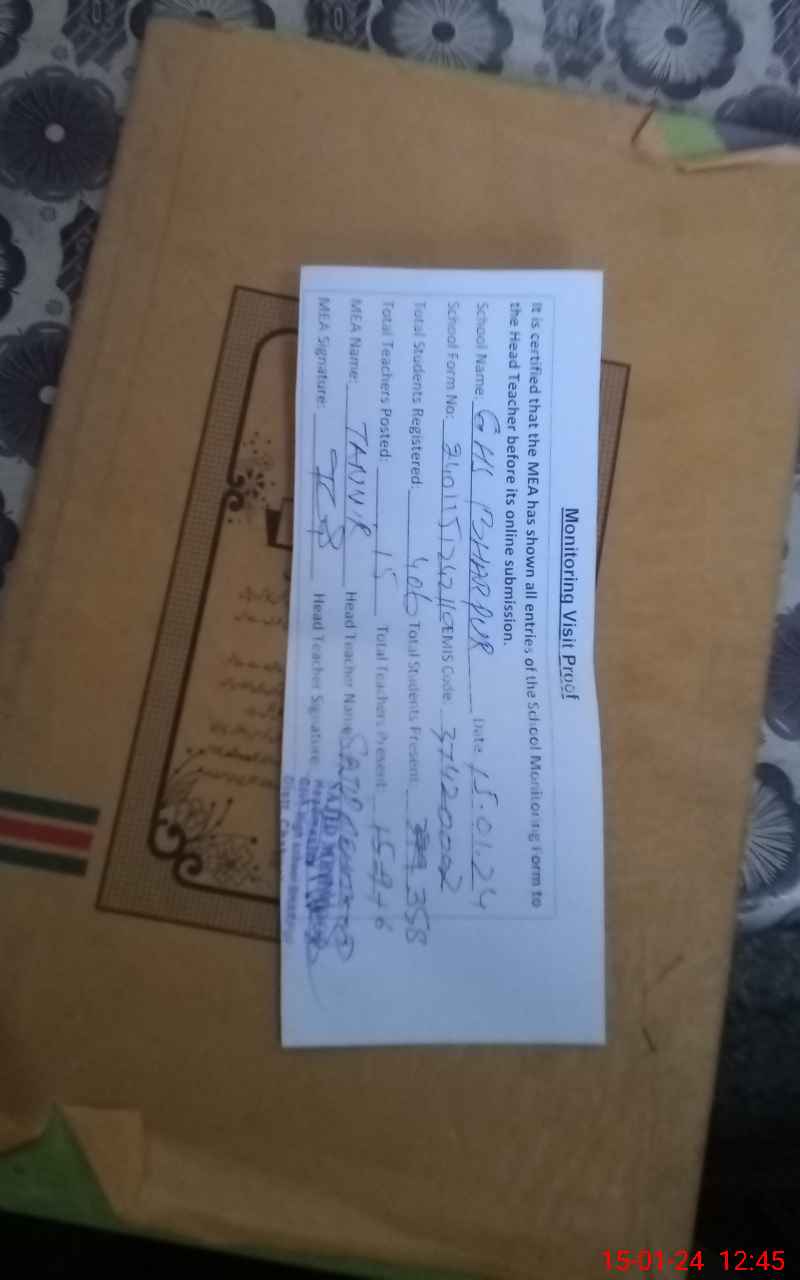 Monitoring Visit Proof
It is certified that the MEA has shown all entries of the School Monitoring Form to
the Head Teacher before its online submission.
School Name: GHS BHARPUR Date: 15.01.24
School Form No: EMIS Code: 37420002
Total Students Registered: 406 Total Students Present: 358
Total Teachers Posted: 15 Total Teachers Present:
MEA Name: TANVIR Head Teacher Name:
MEA Signature: Head Teacher Signature:
15-01-24 12:45